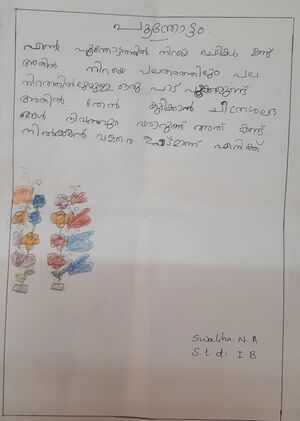 പൂന്തോട്ടം.
എന്റെ പൂന്തോട്ടത്തിൽ നിറയെ ചെടികൾ ഉണ്ട്
അതിൽ നിറയെ പലതരത്തിലും പല
നിറത്തിലുമുള്ള ഒരു പാട് പൂക്കളുണ്ട്
അതിൽ തേൻ കുടിക്കാൻ ചിത്രശലഭ
ങ്ങൾ ദിവസവും വരാറുണ്ട് അത് കണ്ട്
നിൽക്കാൻ വളരെ ഇഷ്ടമാണ് എനിക്ക്
Swaliha. N A
S. t d: I B